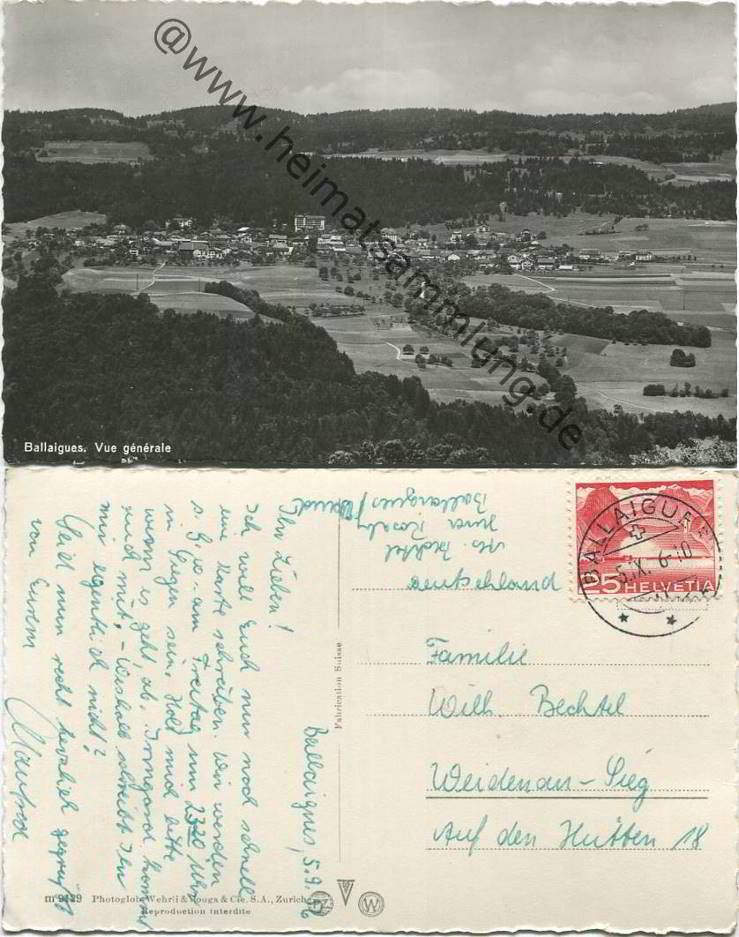 @www.heimatsammlung.de
Ballaigues. Vue générale
Ballaigues, 5.9.
Ihr Lieben!
Ich will Euch nur noch schnell
eine Karte schreiben. Wir werden
s. G. w. am Freitag um 23²⁰ Uhr
in Siegen sein. Holt mich bitte
wenn es geht, ab. Irmgard kommt
auch mit. - Weshalb schreibt Ihr
mir eigentlich nicht?
Seid nun recht herzlich gegrüßt
von Eurem
Manfred
Abs. Bechtel
Ballaigues/Vaud
Deutschland
Familie
Wilh. Bechtel
Weidenau-Sieg
Auf den Hütten 18
BALLAIGUES
5.IX. 6-10
25 HELVETIA
Fabrication Suisse
m 9129 Photoglob-Wehrli & Vouga & Cie. S.A., Zurich
PZ W
Reproduction interdite